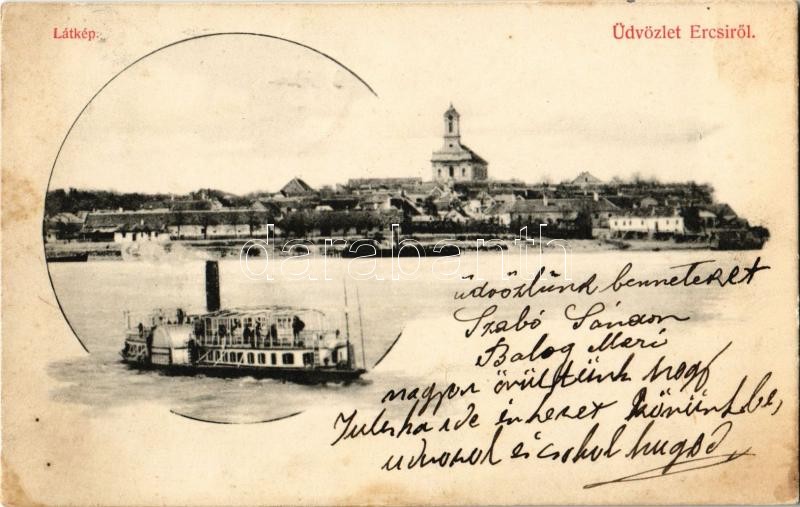 Látkép.
Üdvözlet Ercsiről.
darabanth
üdvözlünk benneteket
Szabó Sándor
Balog Mari
nagyon örültünk hogy
Juliska ide érkezet körünkbe,
udvozol és csokol hugod